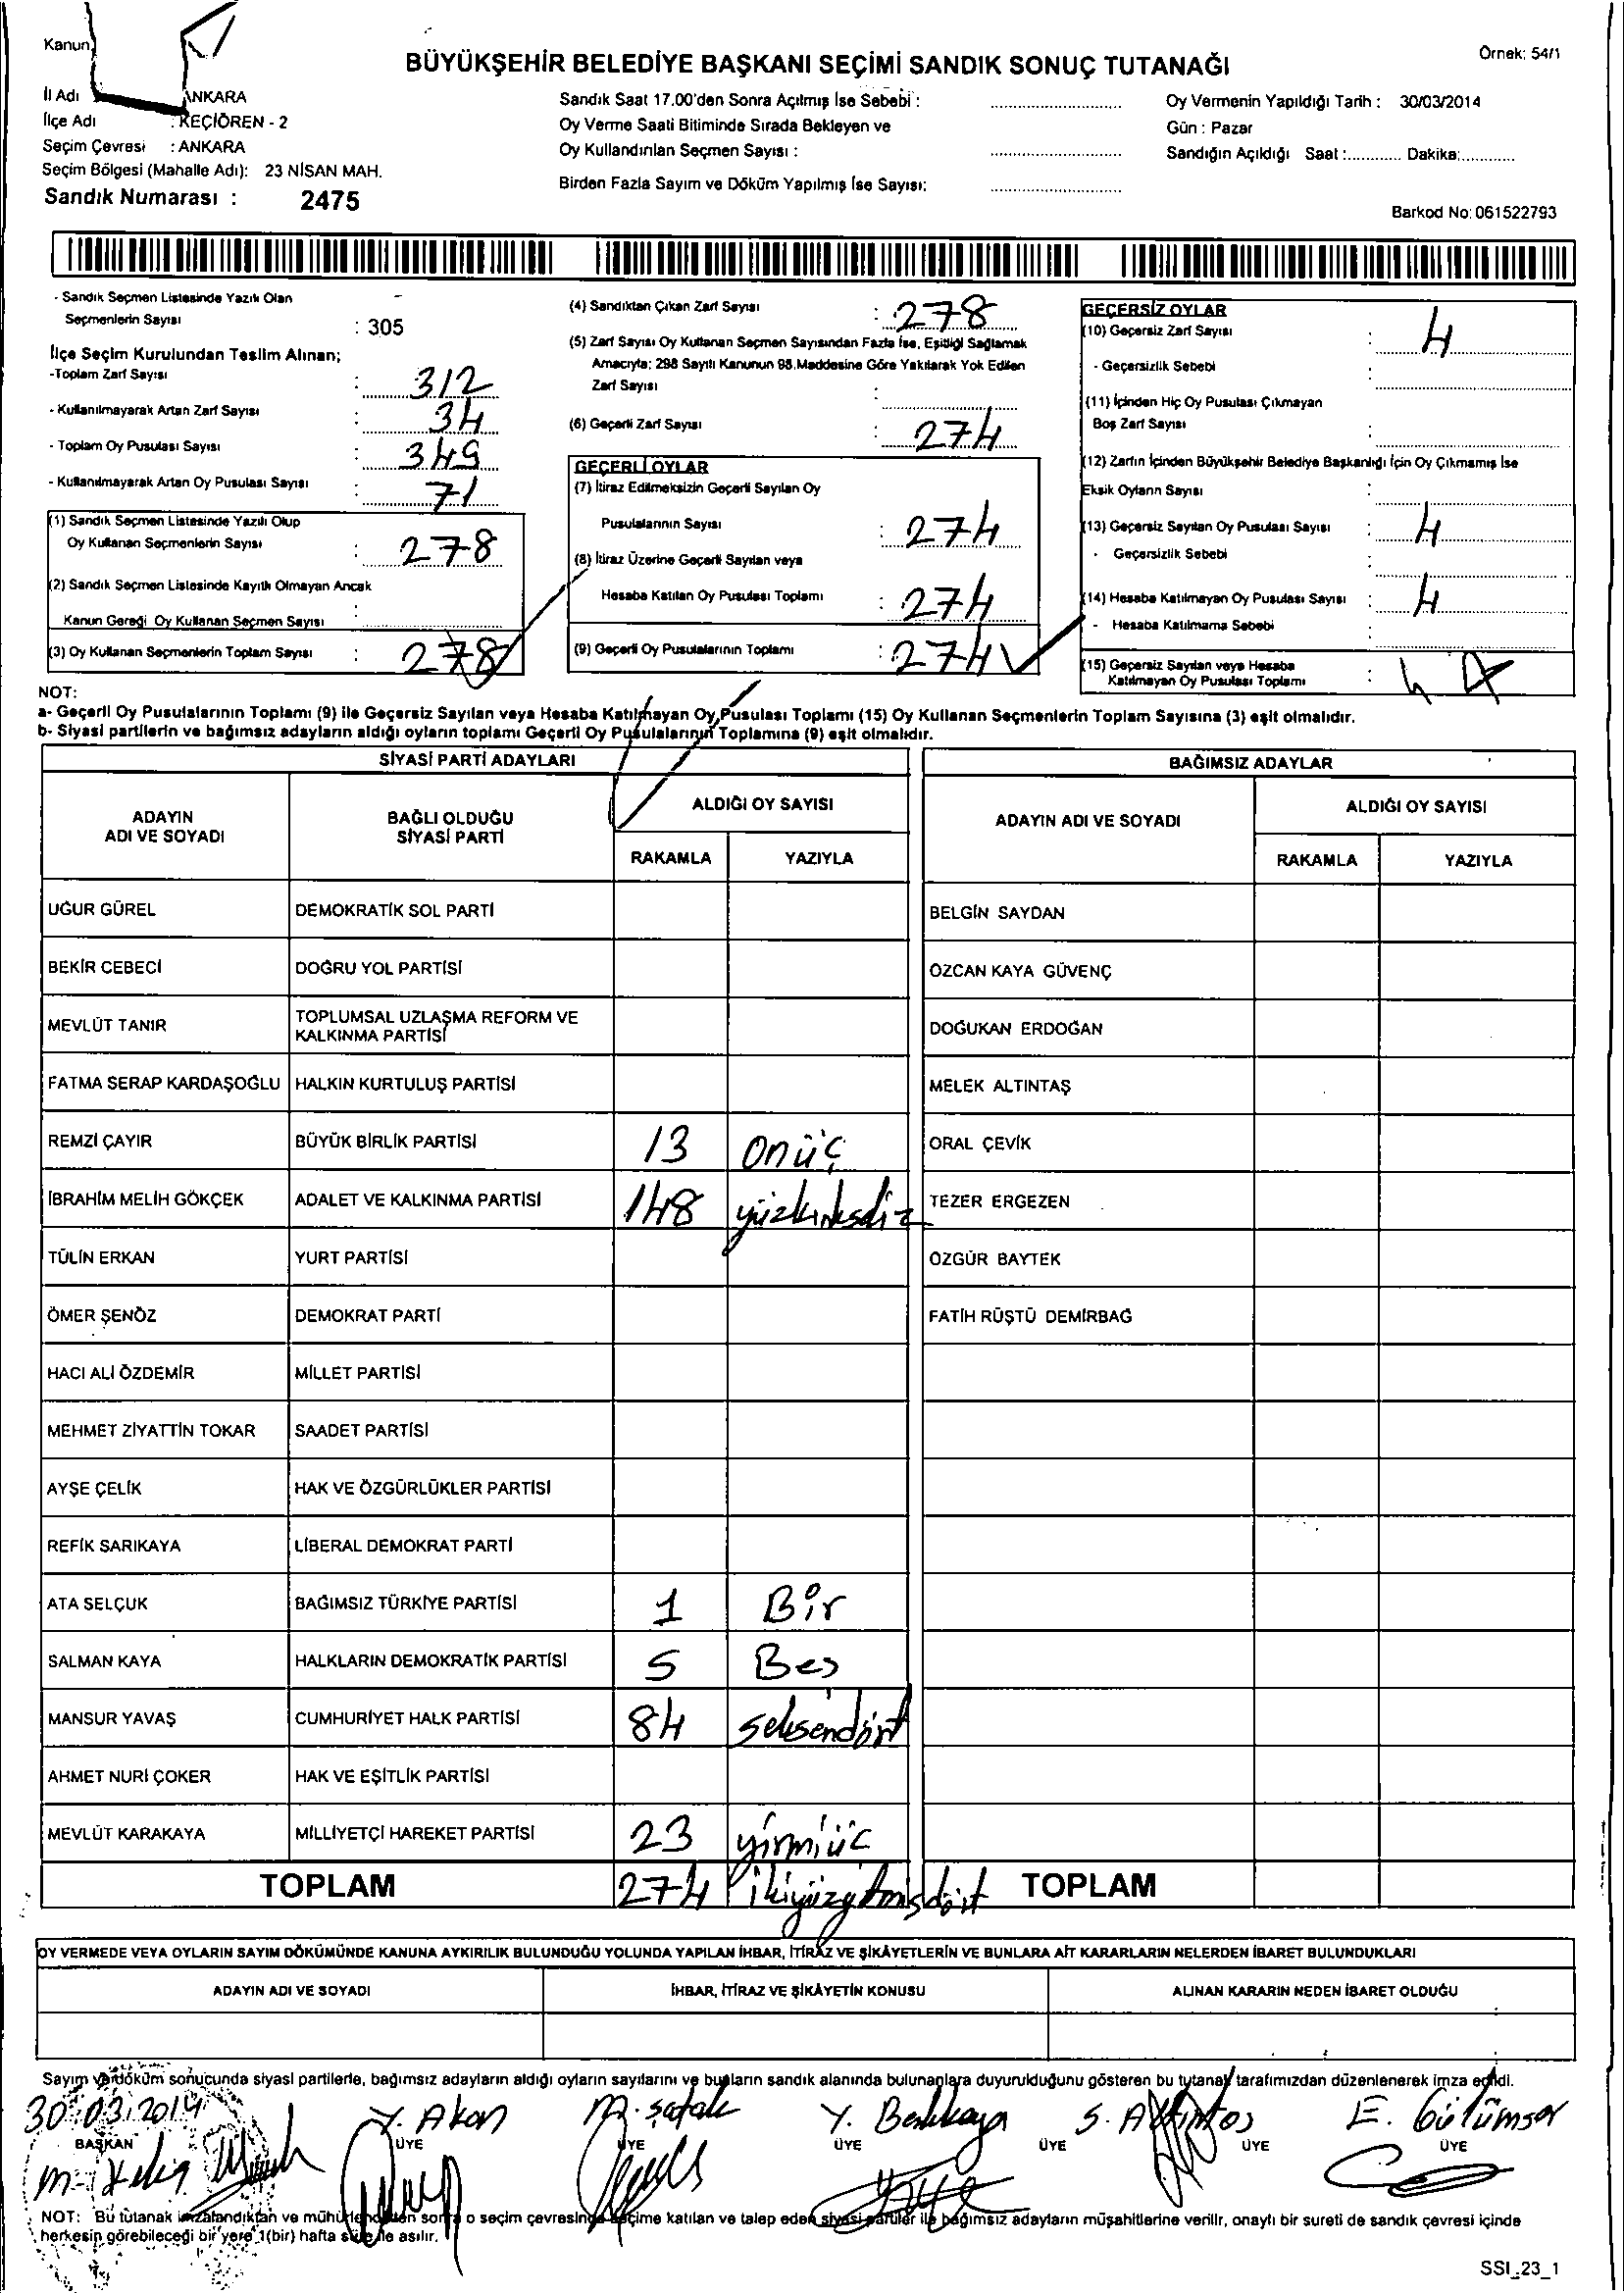 Kanun
Örnek: 54/1
BÜYÜKŞEHİR BELEDİYE BAŞKANI SEÇİMİ SANDIK SONUÇ TUTANAĞI
İl Adı ANKARA
İlçe Adı : KEÇİÖREN - 2
Seçim Çevresi : ANKARA
Seçim Bölgesi (Mahalle Adı): 23 NİSAN MAH.
Sandık Numarası : 2475
Sandık Saat 17.00'den Sonra Açılmış İse Sebebi :
Oy Verme Saati Bitiminde Sırada Bekleyen ve
Oy Kullandırılan Seçmen Sayısı :
Birden Fazla Sayım ve Döküm Yapılmış İse Sayısı:
Oy Vermenin Yapıldığı Tarih : 30/03/2014
Gün : Pazar
Sandığın Açıldığı Saat :............ Dakika:............
Barkod No: 061522793
- Sandık Seçmen Listesinde Yazılı Olan
Seçmenlerin Sayısı : 305
İlçe Seçim Kurulundan Teslim Alınan;
-Toplam Zarf Sayısı : 312
- Kullanılmayarak Artan Zarf Sayısı : 34
- Toplam Oy Pusulası Sayısı : 349
- Kullanılmayarak Artan Oy Pusulası Sayısı : 71
(1) Sandık Seçmen Listesinde Yazılı Olup
Oy Kullanan Seçmenlerin Sayısı : 278
(2) Sandık Seçmen Listesinde Kayıtlı Olmayan Ancak
Kanun Gereği Oy Kullanan Seçmen Sayısı :
(3) Oy Kullanan Seçmenlerin Toplam Sayısı : 278
(4) Sandıktan Çıkan Zarf Sayısı : 278
(5) Zarf Sayısı Oy Kullanan Seçmen Sayısından Fazla İse, Eşitliği Sağlamak
Amacıyla; 298 Sayılı Kanunun 98.Maddesine Göre Yakılarak Yok Edilen
Zarf Sayısı :
(6) Geçerli Zarf Sayısı : 274
GEÇERLİ OYLAR
(7) İtiraz Edilmeksizin Geçerli Sayılan Oy
Pusulalarının Sayısı : 274
(8) İtiraz Üzerine Geçerli Sayılan veya
Hesaba Katılan Oy Pusulası Toplamı : 274
(9) Geçerli Oy Pusulalarının Toplamı : 274
GEÇERSİZ OYLAR
(10) Geçersiz Zarf Sayısı : 4
- Geçersizlik Sebebi :
(11) İçinden Hiç Oy Pusulası Çıkmayan
Boş Zarf Sayısı :
(12) Zarfın İçinden Büyükşehir Belediye Başkanlığı İçin Oy Çıkmamış İse
Eksik Oyların Sayısı :
(13) Geçersiz Sayılan Oy Pusulası Sayısı : 4
- Geçersizlik Sebebi
(14) Hesaba Katılmayan Oy Pusulası Sayısı : 4
- Hesaba Katılmama Sebebi :
(15) Geçersiz Sayılan veya Hesaba
Katılmayan Oy Pusulası Toplamı : 4 4
NOT:
a- Geçerli Oy Pusulalarının Toplamı (9) ile Geçersiz Sayılan veya Hesaba Katılmayan Oy Pusulası Toplamı (15) Oy Kullanan Seçmenlerin Toplam Sayısına (3) eşit olmalıdır.
b- Siyasi partilerin ve bağımsız adayların aldığı oyların toplamı Geçerli Oy Pusulalarının Toplamına (9) eşit olmalıdır.
SİYASİ PARTİ ADAYLARI
ADAYIN ADI VE SOYADI
BAĞLI OLDUĞU SİYASİ PARTİ
ALDIĞI OY SAYISI
RAKAMLA YAZIYLA
UĞUR GÜREL DEMOKRATİK SOL PARTİ
BEKİR CEBECİ DOĞRU YOL PARTİSİ
MEVLÜT TANIR TOPLUMSAL UZLAŞMA REFORM VE KALKINMA PARTİSİ
FATMA SERAP KARDAŞOĞLU HALKIN KURTULUŞ PARTİSİ
REMZİ ÇAYIR BÜYÜK BİRLİK PARTİSİ 13 onüç
İBRAHİM MELİH GÖKÇEK ADALET VE KALKINMA PARTİSİ 148 yüzkırksekiz
TÜLİN ERKAN YURT PARTİSİ
ÖMER ŞENÖZ DEMOKRAT PARTİ
HACI ALİ ÖZDEMİR MİLLET PARTİSİ
MEHMET ZİYATTİN TOKAR SAADET PARTİSİ
AYŞE ÇELİK HAK VE ÖZGÜRLÜKLER PARTİSİ
REFİK SARIKAYA LİBERAL DEMOKRAT PARTİ
ATA SELÇUK BAĞIMSIZ TÜRKİYE PARTİSİ 1 Bir
SALMAN KAYA HALKLARIN DEMOKRATİK PARTİSİ 5 Beş
MANSUR YAVAŞ CUMHURİYET HALK PARTİSİ 84 seksendört
AHMET NURİ ÇOKER HAK VE EŞİTLİK PARTİSİ
MEVLÜT KARAKAYA MİLLİYETÇİ HAREKET PARTİSİ 23 yirmiüç
TOPLAM 274 ikiyüzyetmişdört
BAĞIMSIZ ADAYLAR
ADAYIN ADI VE SOYADI
ALDIĞI OY SAYISI
RAKAMLA YAZIYLA
BELGİN SAYDAN
ÖZCAN KAYA GÜVENÇ
DOĞUKAN ERDOĞAN
MELEK ALTINTAŞ
ORAL ÇEVİK
TEZER ERGEZEN
ÖZGÜR BAYTEK
FATİH RÜŞTÜ DEMİRBAĞ
TOPLAM
OY VERMEDE VEYA OYLARIN SAYIM DÖKÜMÜNDE KANUNA AYKIRILIK BULUNDUĞU YOLUNDA YAPILAN İHBAR, İTİRAZ VE ŞİKÂYETLERİN VE BUNLARA AİT KARARLARIN NELERDEN İBARET BULUNDUKLARI
ADAYIN ADI VE SOYADI İHBAR, İTİRAZ VE ŞİKÂYETİN KONUSU ALINAN KARARIN NEDEN İBARET OLDUĞU
Sayım ve döküm sonucunda siyasi partilerle, bağımsız adayların aldığı oyların sayılarını ve bunların sandık alanında bulunanlara duyurulduğunu gösteren bu tutanak tarafımızdan düzenlenerek imza edildi.
30.03.2014
Y. Akan M. Şafak Y. Beşkkaya S. Altıntaş E. Gülümser
BAŞKAN ÜYE ÜYE ÜYE ÜYE ÜYE ÜYE
NOT: Bu tutanak imzalandıktan ve mühürlendikten sonra o seçim çevresinde seçime katılan ve talep eden siyasi partiler ile bağımsız adayların müşahitlerine verilir, onaylı bir sureti de sandık çevresi içinde
herkesin görebileceği bir yere 1(bir) hafta süre ile asılır.
SSI_23_1